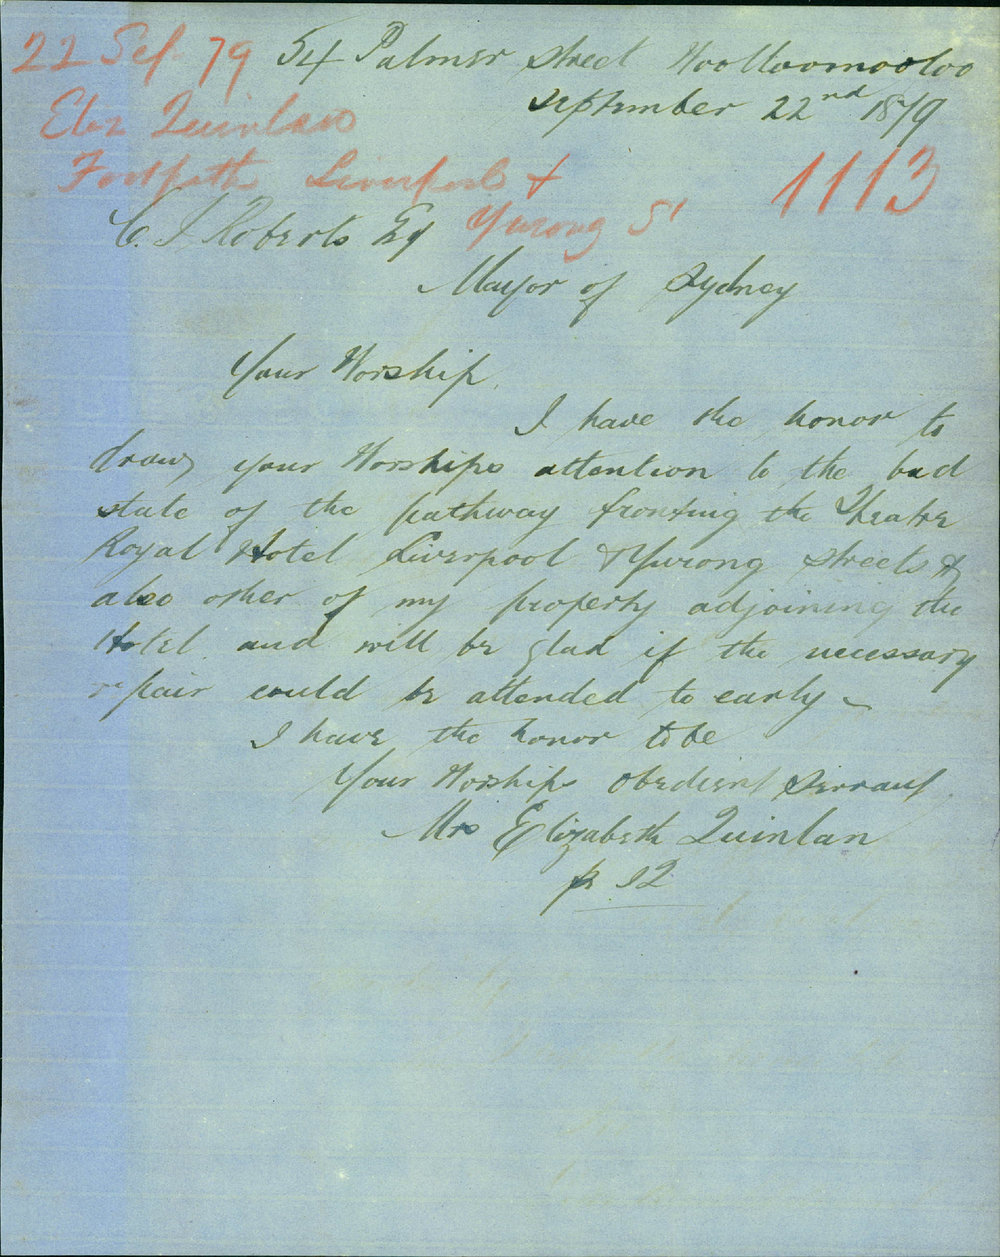 22 Sep. 79
54 Palmer Street Woolloomooloo
September 22nd 1879
Eliz Quinlan
Footpath Liverpool +
Yurong St
1113
C. J. Roberts Esq
Mayor of Sydney
Your Worship.
I have the honor to
draw your Worships attention to the bad
state of the pathway fronting the Theatre
Royal Hotel Liverpool & Yurong Streets &
also other of my property adjoining the
Hotel and will be glad if the necessary
repair could be attended to early -
I have the honor to be
Your Worships obedient Servant
Mrs Elizabeth Quinlan